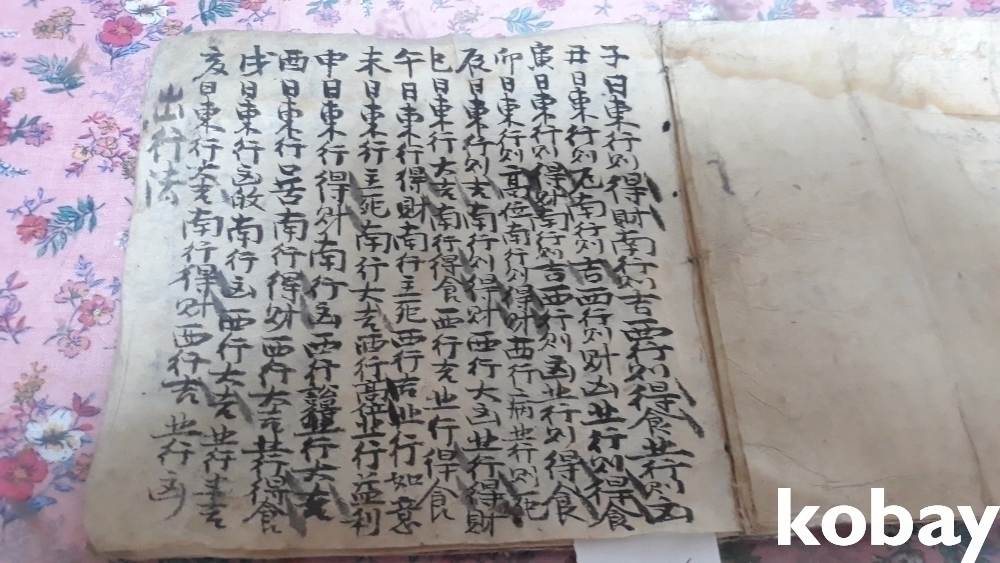 子日東行則得財南行則吉西行則得食北行則凶
丑日東行則凡南行則吉西行則財凶北行則得食
寅日東行則得財南行則吉西行則凶北行則得食
卯日東行則高位南行則得財西行病北行則死
辰日東行則吉南行則得財西行大凶北行得財
巳日東行大吉南行得食西行吉北行得食
午日東行得財南行主死西行吉北行如意
未日東行主死南行大吉西行高位北行亟利
申日東行得財南行凶西行行大吉
酉日東行呂南行得財西行大吉北行得食
戌日東行凶敗南行凶西行大吉北行吉
亥日東行大吉南行得财西行吉北行凶
出行法
kobay